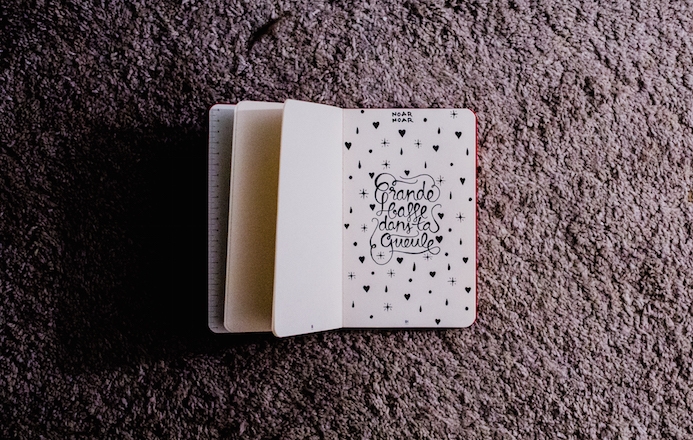 NOAR
NOAR
Grande
baffe
dans ta
gueule